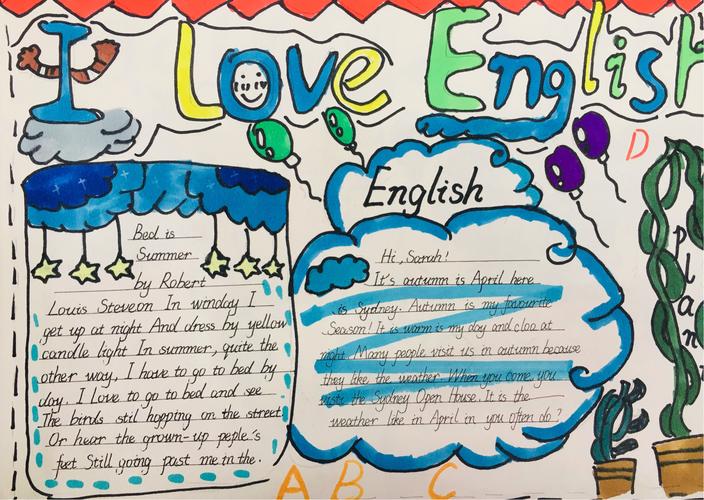 I Love English
D
English
Plant
Bed is
Summer
by Robert
Louis Steveon In winday I
get up at night And dress by yellow
candle light In summer, quite the
other way, I have to go to bed by
day. I love to go to bed and see
The birds stil hopping on the street
Or hear the grown-up peple's
feet Still going past me in the.
Hi, Sarah!
It's autumn is April here
is Sydney. Autumn is my favourite
Season! It is warm is my day and cloo at
night. Many people visit us in autumn because
they like the weather. When you come, you
visit the Sydney Open House. It is the
weather like in April in you often do?
A B C